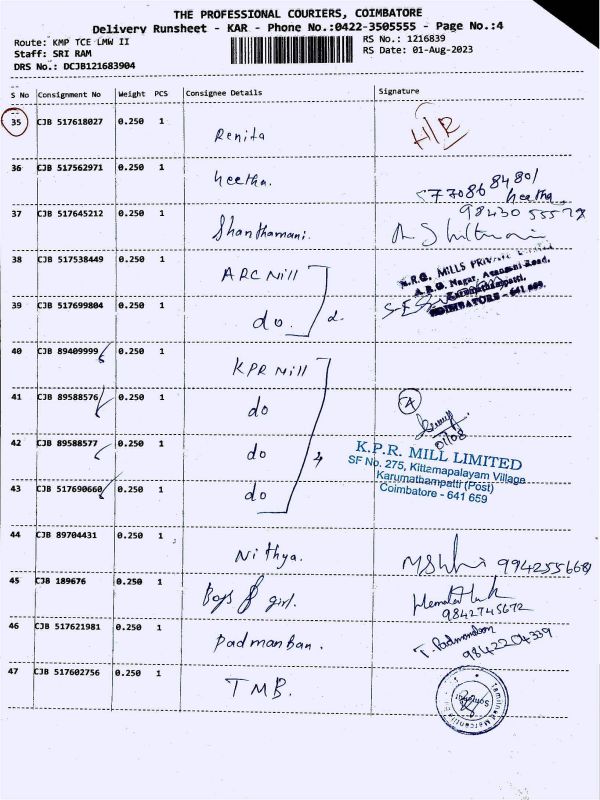 THE PROFESSIONAL COURIERS, COIMBATORE
Delivery Runsheet - KAR - Phone No.:0422-3505555 - Page No.:4
Route: KMP TCE LMW II
RS No.: 1216839
Staff: SRI RAM
RS Date: 01-Aug-2023
DRS No.: DCJB121683904
S No Consignment No Weight PCS Consignee Details Signature
35 CJB 517618027 0.250 1 Renita H/R
36 CJB 517562971 0.250 1 Geetha. Geetha
37 CJB 517645212 0.250 1 Shanthamani. 98430 55578
38 CJB 517538449 0.250 1 ARC Mill
K.R.G. MILLS PRIVATE LIMITED
A.R.G. Nagar, Road,
Karumathampatti,
COIMBATORE - 641 659.
39 CJB 517699804 0.250 1 do. 2.
40 CJB 89409999 0.250 1 KPR Mill
41 CJB 89588576 0.250 1 do 4
01/08
42 CJB 89588577 0.250 1 do 4
K.P.R. MILL LIMITED
SF No. 275, Kittampalayam Village
Karumathampatti (Post)
Coimbatore - 641 659
43 CJB 517690660 0.250 1 do
44 CJB 89704431 0.250 1 Nithya. 9942555668
45 CJB 189676 0.250 1 Boys & girl.
9842745672
46 CJB 517621981 0.250 1 Padmanban. T. Padmanban
9842204339
47 CJB 517602756 0.250 1 TMB.
Tamilnad Mercantile